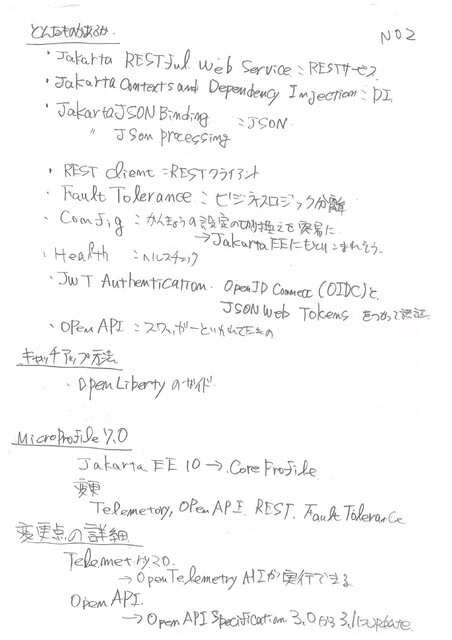 どんなものがあるか.
NO2
・Jakarta RESTful Web Service：RESTサービス
・Jakarta Contexts and Dependency Injection：DI
・Jakarta JSON Binding ：JSON
〃 JSon processing
・REST client：RESTクライアント
・Fault Tolerance：ビジネスロジック分離
・Config：かんきょうの設定の切り換えを容易に
→Jakarta EEにもとりこまれそう.
・Health ：ヘルスチェック
・JWT Authentication. OpenID Connect (OIDC)と
JSON Web Tokens をつかって認証
・OPen API：スワッガーといわれてたもの
キャッチアップ方法
・Open Libertyのガイド
MicroProfile 7.0
Jakarta EE 10 → Core Profile
変更
Telemetory, OPen API. REST. Fault Tolerance
変更点の詳細
Telemetry2.0.
→OpenTelemetry APIが実行できる
Open API.
→Open API Specification 3.0から3.1にupdate.